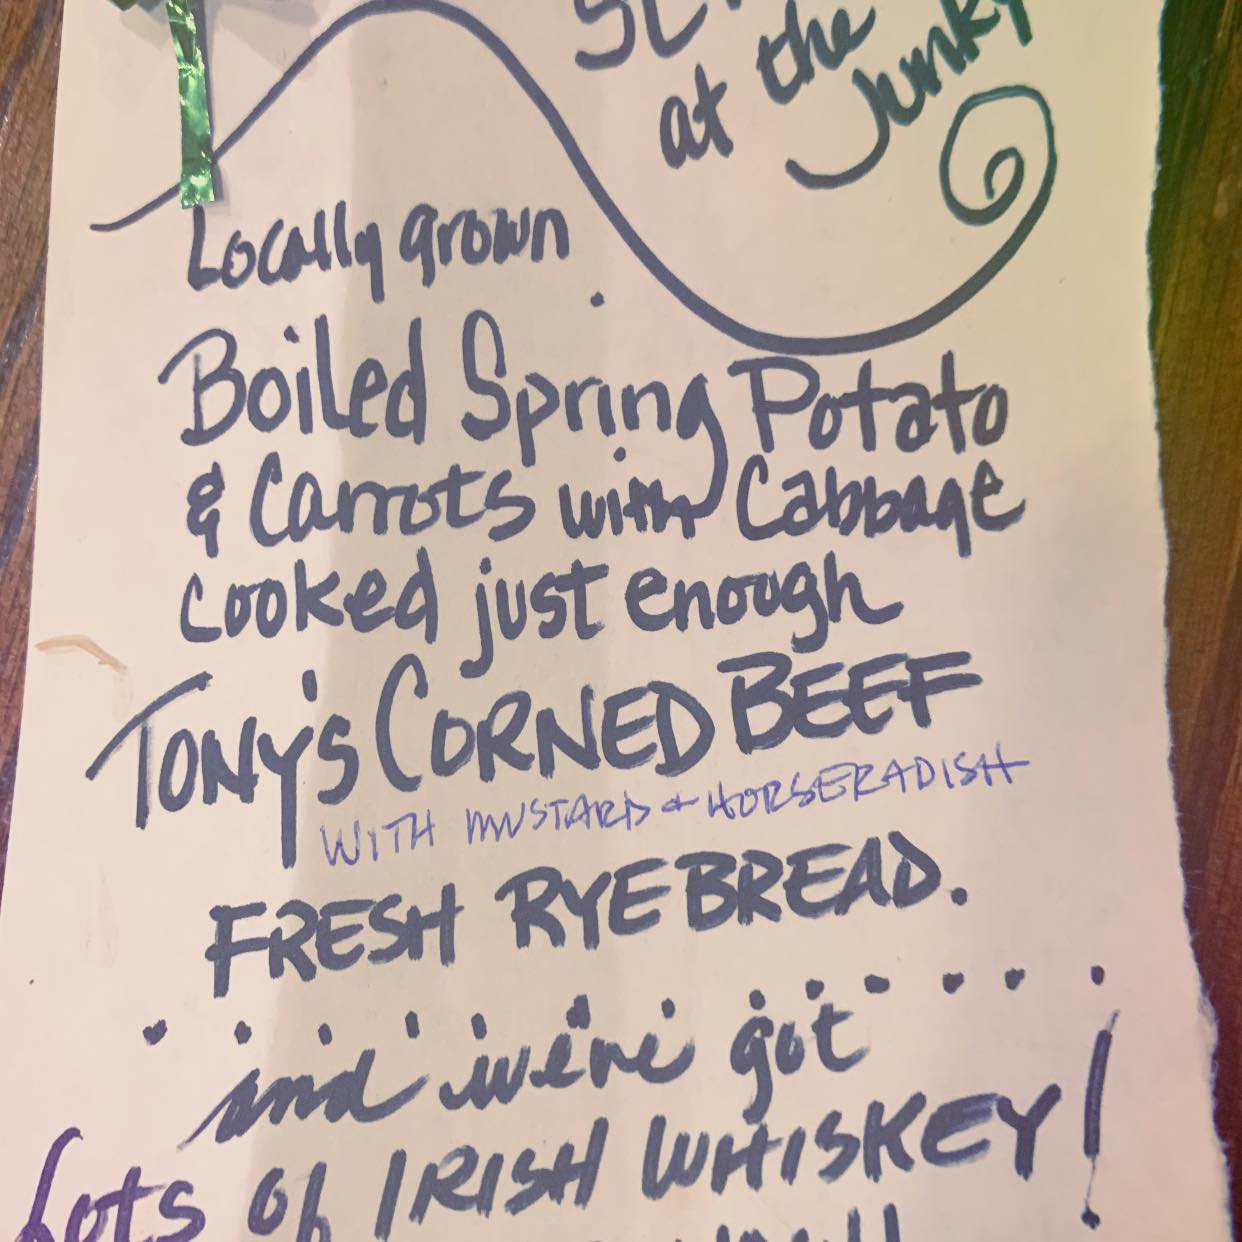 at the
Junky
Locally grown
Boiled Spring Potato
& Carrots with Cabbage
cooked just enough
TONY'S CORNED BEEF
WITH MUSTARD & HORSERADISH
FRESH RYE BREAD.
and we've got
Lots of IRISH WHISKEY!